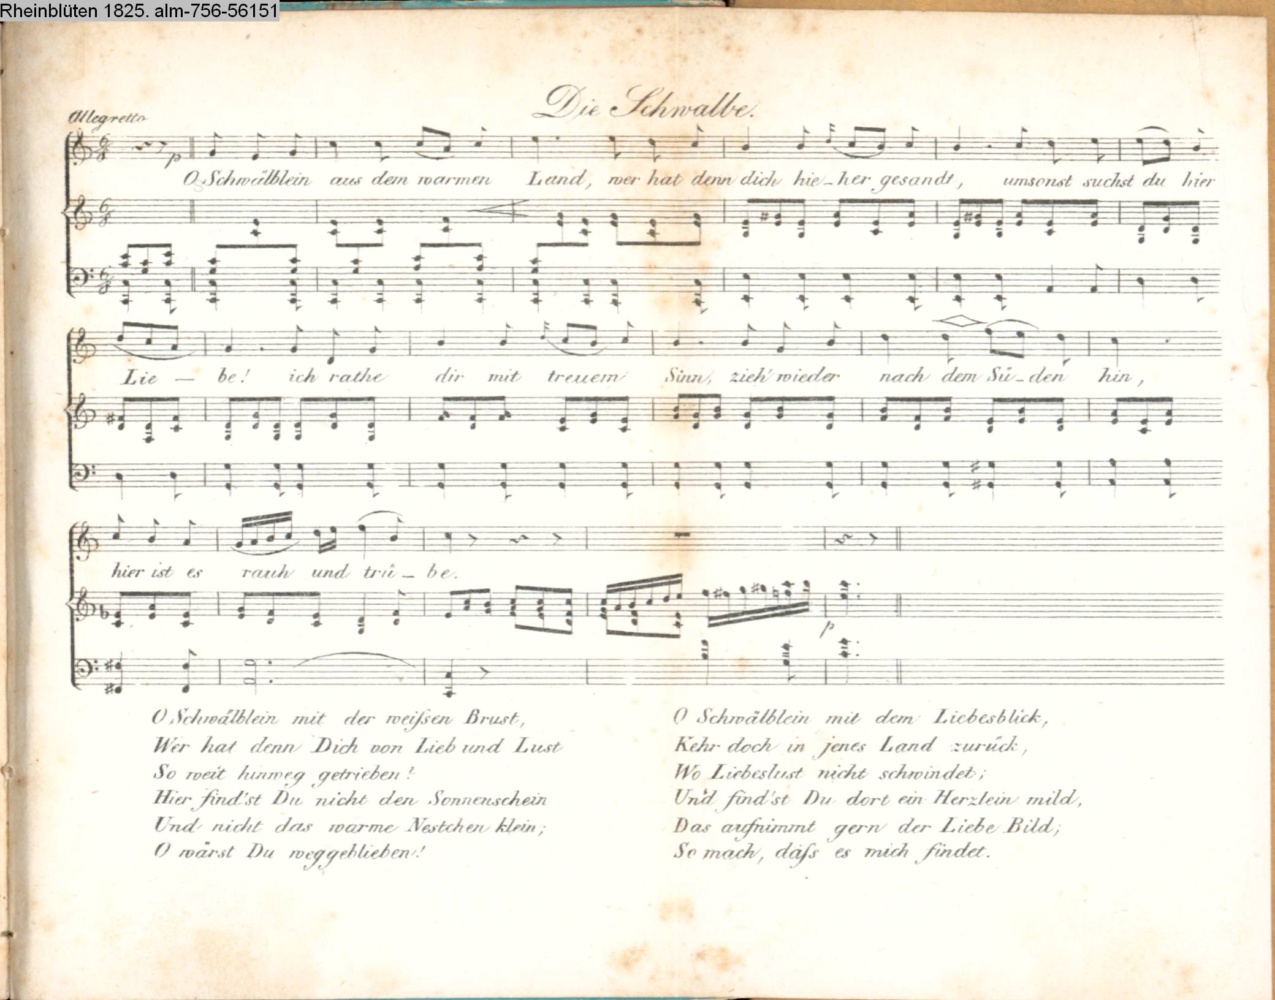 Rheinblüten 1825. alm-756-56151
Die Schwalbe.
Allegretto
p
O Schwälblein aus dem warmen Land, wer hat denn dich hie-her gesandt, umsonst suchst du hier
Lie - be! ich rathe dir mit treuem Sinn, zieh' wieder nach dem Sü-den hin,
hier ist es rauh und trü - be.
p
O Schwälblein mit der weiſsen Brust,
Wer hat denn Dich von Lieb und Lust
So weit hinweg getrieben!
Hier find'st Du nicht den Sonnenschein
Und nicht das warme Nestchen klein;
O wärst Du weggeblieben!
O Schwälblein mit dem Liebesblick,
Kehr doch in jenes Land zurück,
Wo Liebeslust nicht schwindet;
Und find'st Du dort ein Herzlein mild,
Das aufnimmt gern der Liebe Bild;
So mach, daſs es mich findet.